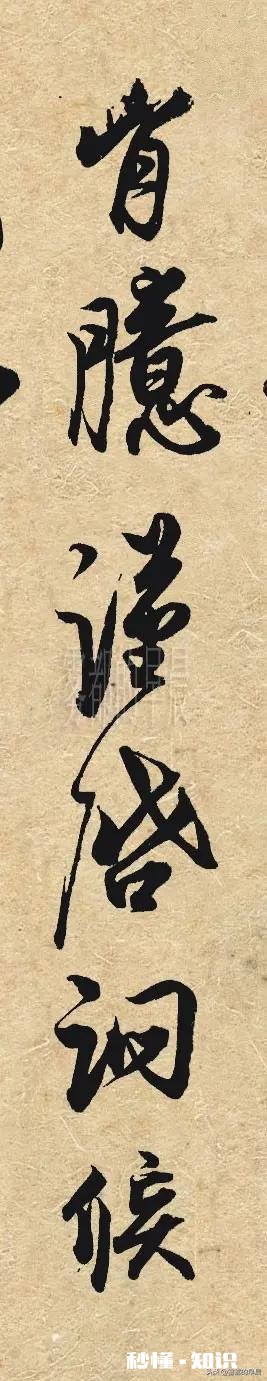 臆謹啓詗候
秒懂·知识